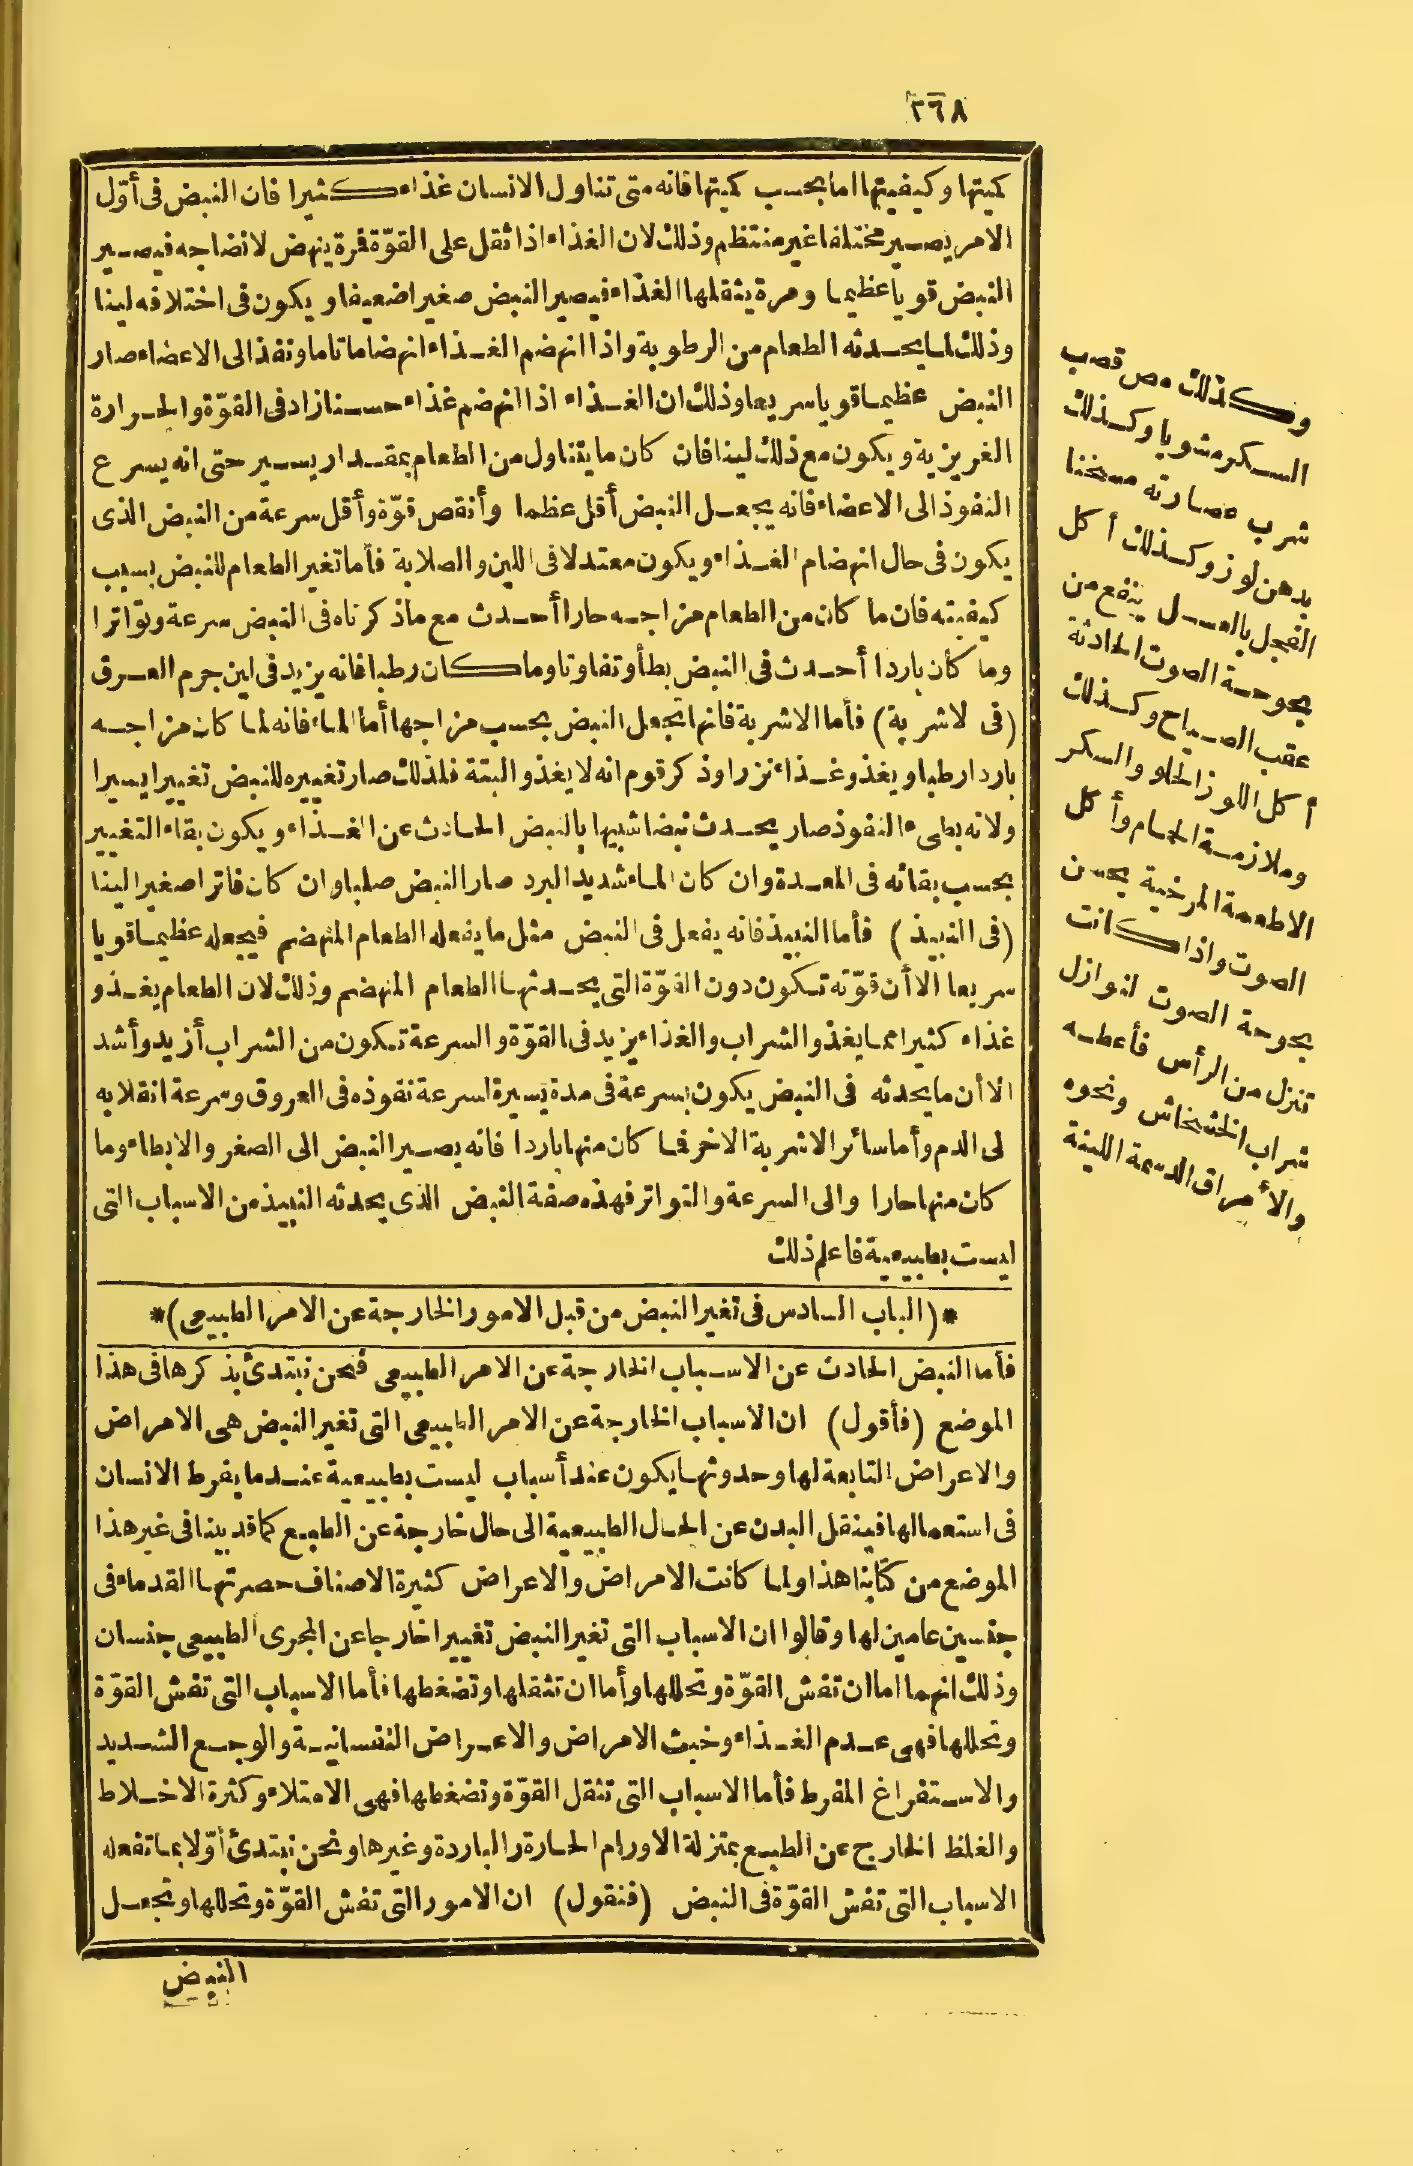 ٢٦٨
كميتها وكيفيتها اما بحسب كميتها فانه متى تناول الانسان غذاء كثيرا فان النبض فى أوّل
الامر يصير مختلفا غير منتظم وذلك لان الغذاء اذا ثقل على القوّة فمرة ينهض لانضاجه فيصير
النبض قويا عظيما ومرة يثقلها الغذاء فيصير النبض صغيرا ضعيفا ويكون فى اختلافه لينا
وذلك لما يحدثه الطعام من الرطوبة واذا انهضم الغذاء انهضاما تاما ونفذ الى الاعضاء صار
النبض عظيما قويا سريعا وذلك ان الغذاء اذا انهضم غذاء حسنا زاد فى القوّة والحرارة
الغريزية ويكون مع ذلك لينا فان كان ما يتناول من الطعام بمقدار يسير حتى انه يسرع
النفوذ الى الاعضاء فانه يجعل النبض أقل عظما وأنقص قوّة وأقل سرعة من النبض الذى
يكون فى حال انهضام الغذاء ويكون معتدلا فى اللين والصلابة فأما تغير الطعام للنبض بسبب
كيفيته فان ما كان من الطعام مزاجه حارا أحدث مع ماذكرناه فى النبض سرعة وتواترا
وما كان باردا أحدث فى النبض بطأ وتفاوتا وما كان رطبا فانه يزيد فى لين جرم العرق
(فى لاشربة) فأما الاشربة فانها تجعل النبض بحسب مزاجها أما الماء فانه لما كان مزاجه
باردا رطبا ويغذو غذاء نزرا وذكر قوم انه لا يغذو البتة فلذلك صار تغييره للنبض تغييرا يسيرا
ولانه بطىء النفوذ صار يحدث نبضا شبيها بالنبض الحادث عن الغذاء ويكون بقاء التغيير
بحسب بقائه فى المعدة وان كان الماء شديد البرد صار النبض صلبا وان كان فاترا صغيرا لينا
(فى النبيذ) فأما النبيذ فانه يفعل فى النبض مثل ما يفعله الطعام المنهضم فيجعله عظيما قويا
سريعا الا أن قوّته تكون دون القوّة التى يحدثها الطعام المنهضم وذلك لان الطعام يغذو
غذاء كثيرا مما يغذو الشراب والغذاء يزيد فى القوّة والسرعة تكون من الشراب أزيد وأشد
الا أن ما يحدثه فى النبض يكون بسرعة فى مدة يسيرة لسرعة نفوذه فى العروق وسرعة انقلابه
لى الدم وأما سائر الاشربة الاخر فما كان منها باردا فانه يصير النبض الى الصغر والابطاء وما
كان منها حارا والى السرعة والتواتر فهذه صفة النبض الذى يحدثه النبيذ من الاسباب التى
ليست بطبيعية فاعلم ذلك
*(الباب السادس فى تغير النبض من قبل الامور الخارجة عن الامر الطبيعى)*
فأما النبض الحادث عن الاسباب الخارجة عن الامر الطبيعى فنحن نبتدئ بذكرها فى هذا
الموضع (فأقول) ان الاسباب الخارجة عن الامر الطبيعى التى تغير النبض هى الامراض
والاعراض التابعة لها وحدوثها يكون عند أسباب ليست بطبيعية عندما يفرط الانسان
فى استعمالها فينقل البدن عن الحال الطبيعية الى حال خارجة عن الطبيع كما قد بينا فى غير هذا
الموضع من كتابنا هذا ولما كانت الامراض والاعراض كثيرة الاصناف حصرتها القدماء فى
جنسين عامين لها وقالوا ان الاسباب التى تغير النبض تغييرا خارجا عن المجرى الطبيعى جنسان
وذلك انهما اما ان تفش القوّة وتحللها وأما ان تثقلها وتضغطها فأما الاسباب التى تفش القوّة
وتحللها فهى عدم الغذاء وخبث الامراض والاعراض النفسانية والوجع الشديد
والاستفراغ المفرط فأما الاسباب التى تثقل القوّة وتضغطها فهى الامتلاء وكثرة الاخلاط
والغلظ الخارج عن الطبيع بمنزلة الاورام الحارة والباردة وغيرها ونحن نبتدئ أوّلا بما تفعله
الاسباب التى تفش القوّة فى النبض (فنقول) ان الامور التى تفش القوّة وتحللها وتجعل
النبض
وكذلك مص قصب
السكر مشويا وكذلك
شرب عصارته مسخنا
بدهن لوز وكذلك أكل
الفجل بالعسل ينفع من
بحوحة الصوت الحادثة
عقب الصياح وكذلك
أكل اللوز الحلو والسكر
وملازمة الحمام وأكل
الاطعمة المرخية يحسن
الصوت واذا كانت
بحوحة الصوت لنوازل
تنزل من الرأس فأعطه
شراب الخشخاش ونحوه
والأمراق الدسمة اللينة